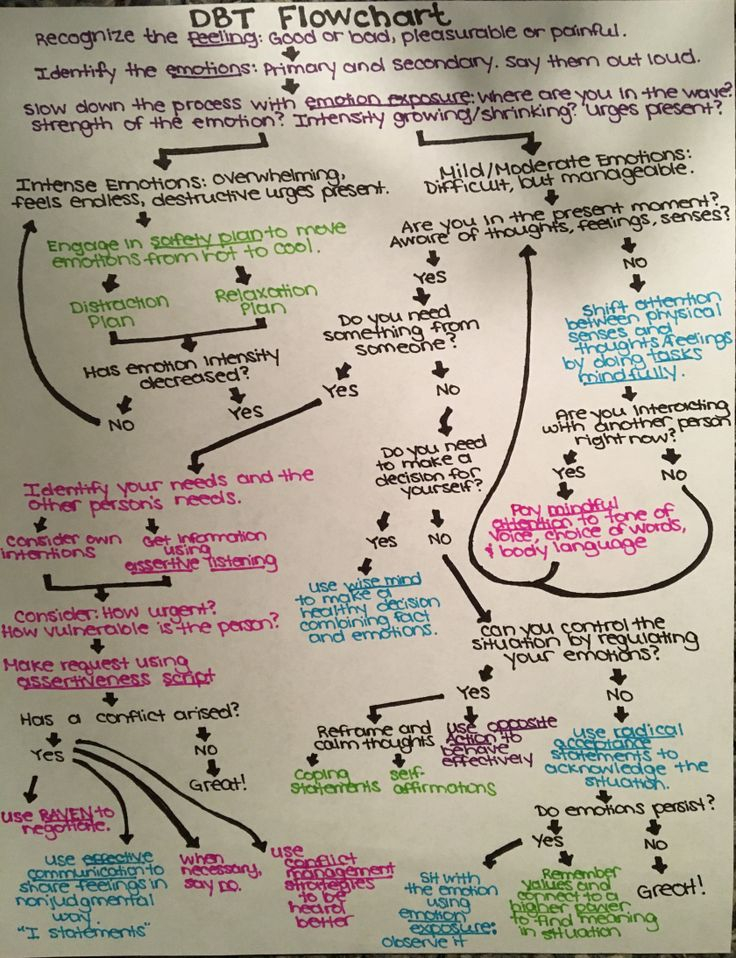 DBT Flowchart
Recognize the feeling: Good or bad, pleasurable or painful.
Identify the emotions: Primary and secondary. Say them out loud.
Slow down the process with emotion exposure: where are you in the wave?
strength of the emotion? Intensity growing/shrinking? Urges present?
Intense Emotions: overwhelming,
feels endless, destructive urges present.
Engage in safety plan to move
emotions from hot to cool.
Distraction
Plan
Relaxation
Plan
Has emotion intensity
decreased?
No
Yes
Mild/Moderate Emotions:
Difficult, but manageable.
Are you in the present moment?
Aware of thoughts, feelings, senses?
Yes
No
Do you need
something from
someone?
Yes
No
Shift attention
between physical
senses and
thoughts/feelings
by doing tasks
mindfully.
Are you interacting
with another person
right now?
Yes
No
Pay mindful
attention to tone of
voice, choice of words,
& body language
Identify your needs and the
other person's needs.
Consider own
intentions
Get information
using
assertive listening
Consider: How urgent?
How vulnerable is the person?
Make request using
assertiveness script
Has a conflict arised?
Yes
No
Great!
use RAVEN to
negotiate.
use effective
communication to
share feelings in
nonjudgmental
way.
"I statements"
when
necessary,
say no.
use
conflict
management
strategies
to be
heard
better
Do you need
to make a
decision for
yourself?
Yes
No
use wise mind
to make a
healthy decision
combining fact
and emotions.
Can you control the
situation by regulating
your emotions?
Yes
No
Reframe and
calm thoughts
Coping
statements
self-
affirmations
use opposite
action to
behave
effectively
use radical
acceptance
statements to
acknowledge the
situation.
Do emotions persist?
Yes
No
Great!
Sit with
the emotion
using
emotion
exposure:
observe it
Remember
values and
connect to a
higher power
to find meaning
in situation